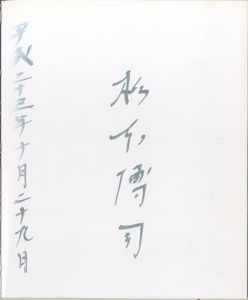 杉本博司
平成二十三年十月二十九日